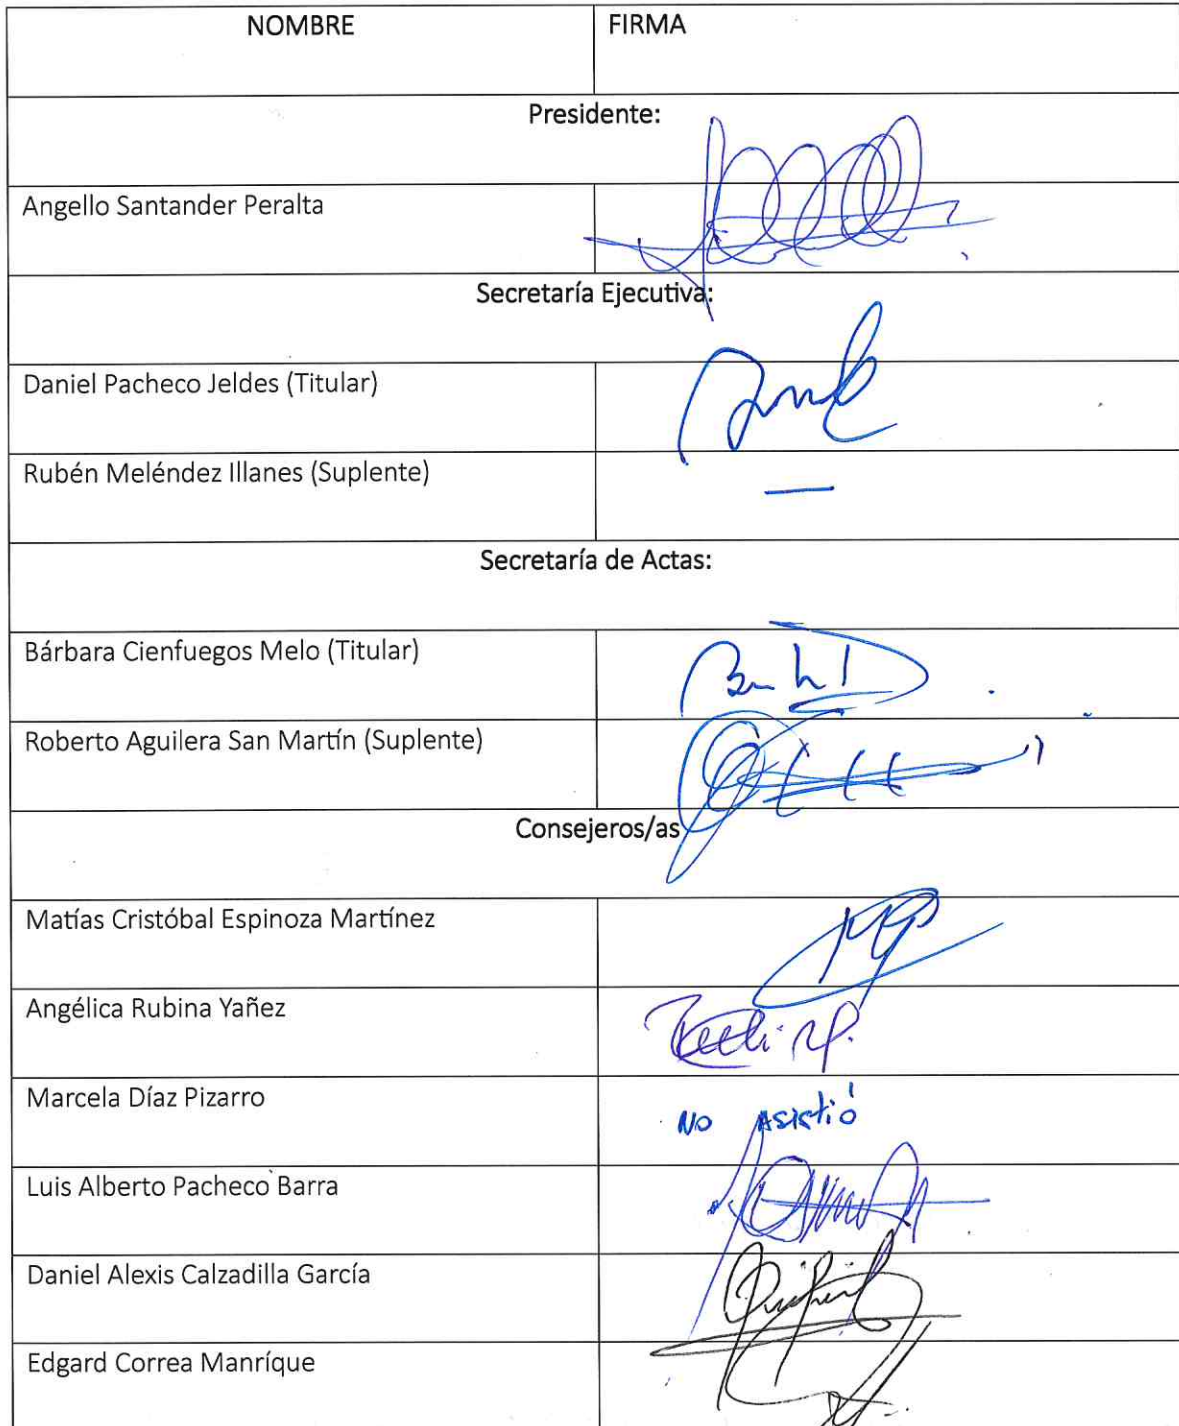 NOMBRE FIRMA
Presidente:
Angello Santander Peralta
Secretaría Ejecutiva:
Daniel Pacheco Jeldes (Titular)
Rubén Meléndez Illanes (Suplente) —
Secretaría de Actas:
Bárbara Cienfuegos Melo (Titular)
Roberto Aguilera San Martín (Suplente)
Consejeros/as
Matías Cristóbal Espinoza Martínez
Angélica Rubina Yañez
Marcela Díaz Pizarro No Asistió
Luis Alberto Pacheco Barra
Daniel Alexis Calzadilla García
Edgard Correa Manríque